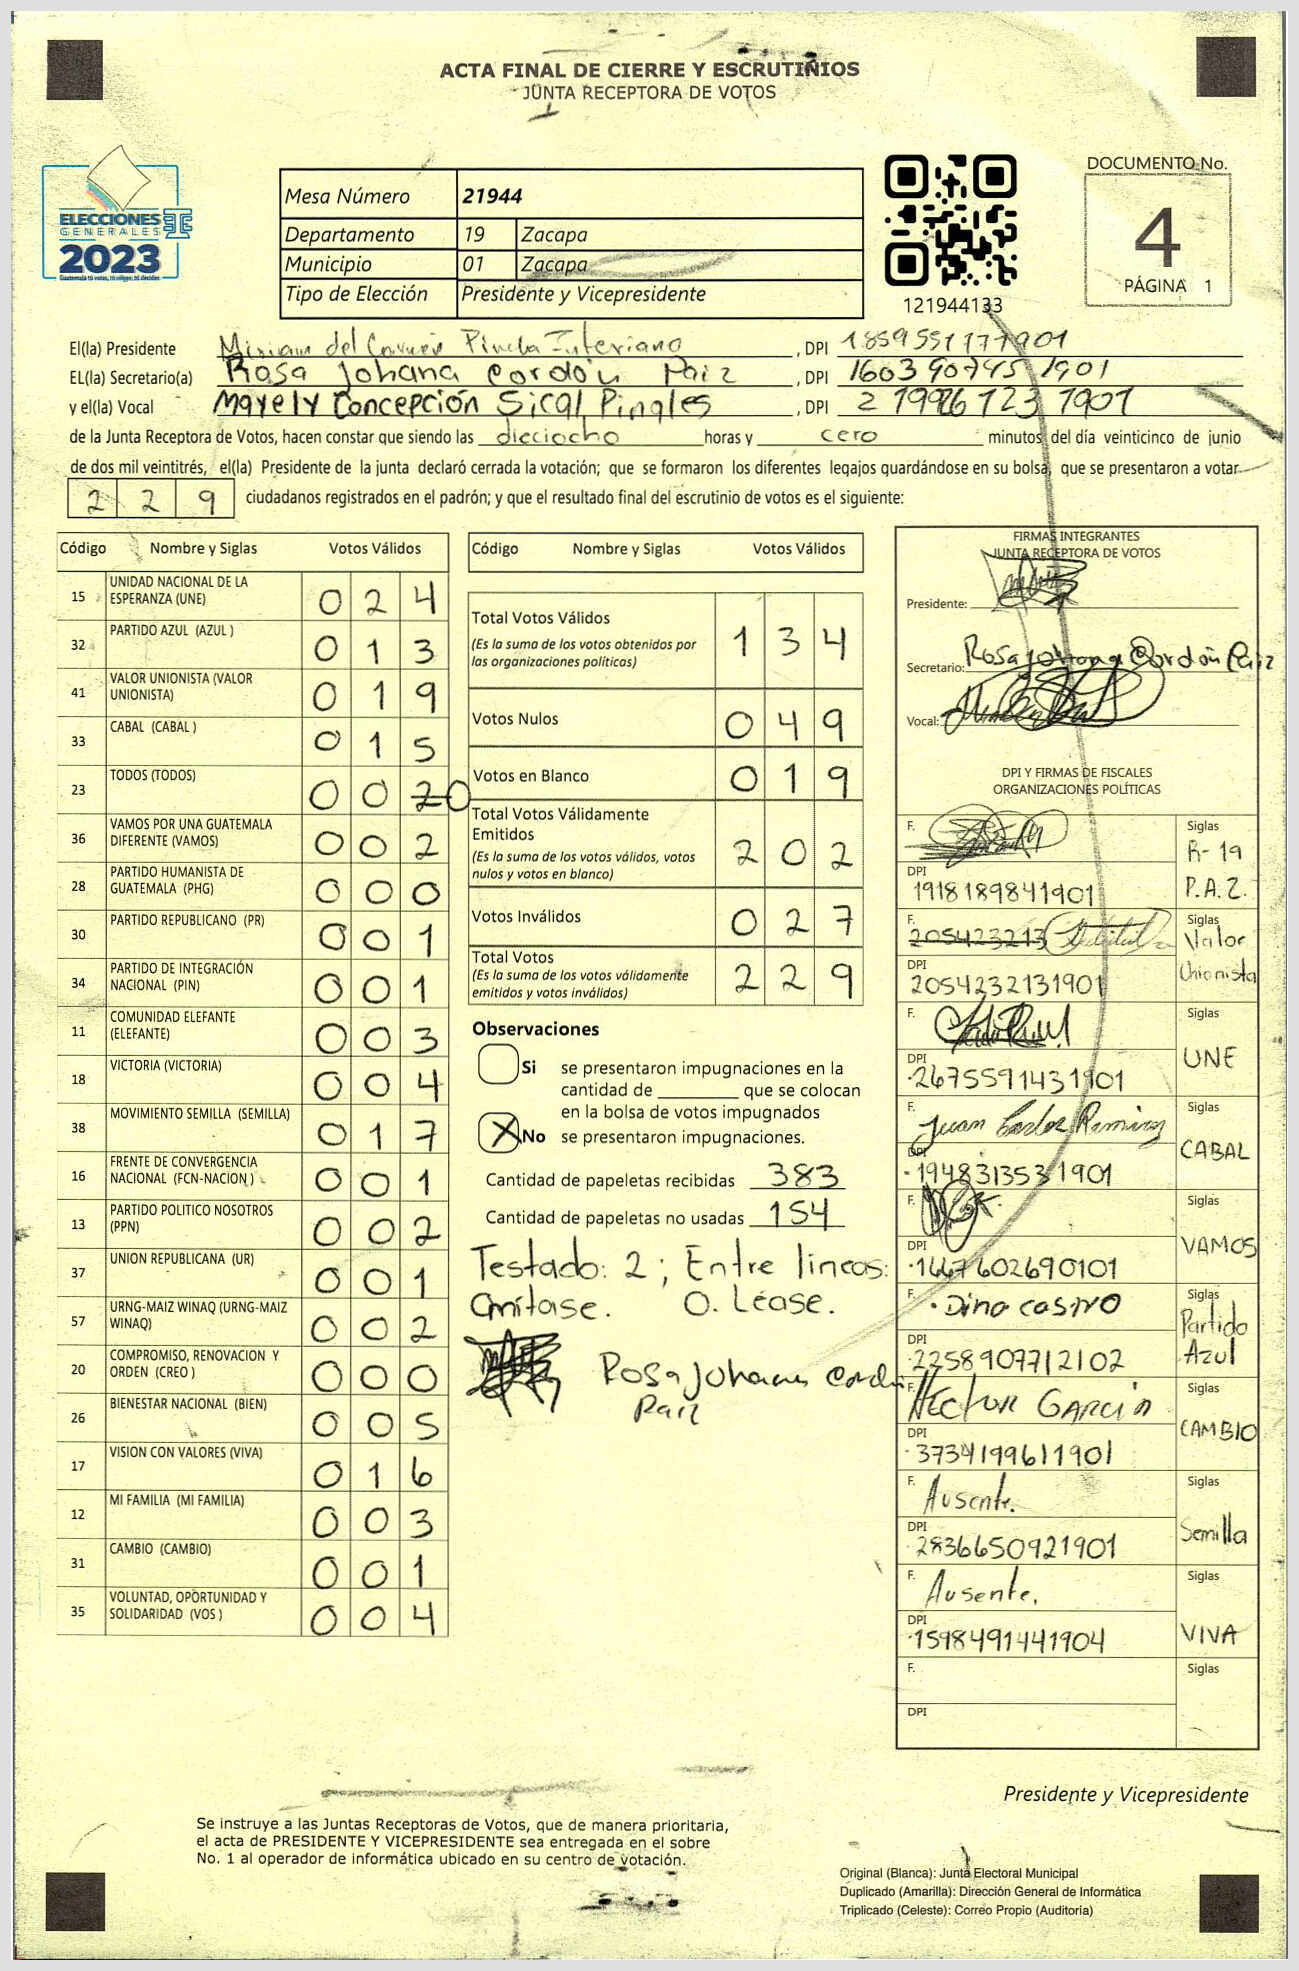 ACTA FINAL DE CIERRE Y ESCRUTINIOS
JUNTA RECEPTORA DE VOTOS
ELECCIONES
GENERALES
2023
Mesa Número 21944
Departamento 19 Zacapa
Municipio 01 Zacapa
Tipo de Elección Presidente y Vicepresidente
121944133
DOCUMENTO No.
4
PÁGINA 1
El(la) Presidente Miriam del Carmen Pineda Interiano, DPI 1859551771901
EL(la) Secretario(a) Rosa Johana Cordón Paiz, DPI 1603907451901
y el(la) Vocal Mayely Concepción Sical Pinales, DPI
de la Junta Receptora de Votos, hacen constar que siendo las dieciocho horas y cero minutos del día veinticinco de junio
de dos mil veintitrés, el(la) Presidente de la junta declaró cerrada la votación; que se formaron los diferentes legajos guardándose en su bolsa, que se presentaron a votar
229 ciudadanos registrados en el padrón; y que el resultado final del escrutinio de votos es el siguiente:
Código Nombre y Siglas Votos Válidos
15 UNIDAD NACIONAL DE LA ESPERANZA (UNE) 0 2 4
32 PARTIDO AZUL (AZUL ) 0 1 3
41 VALOR UNIONISTA (VALOR UNIONISTA) 0 1 9
33 CABAL (CABAL ) 0 1 5
23 TODOS (TODOS) 0 0 2 0
36 VAMOS POR UNA GUATEMALA DIFERENTE (VAMOS) 0 0 2
28 PARTIDO HUMANISTA DE GUATEMALA (PHG) 0 0 0
30 PARTIDO REPUBLICANO (PR) 0 0 1
34 PARTIDO DE INTEGRACIÓN NACIONAL (PIN) 0 0 1
11 COMUNIDAD ELEFANTE (ELEFANTE) 0 0 3
18 VICTORIA (VICTORIA) 0 0 4
38 MOVIMIENTO SEMILLA (SEMILLA) 0 1 7
16 FRENTE DE CONVERGENCIA NACIONAL (FCN-NACION ) 0 0 1
13 PARTIDO POLITICO NOSOTROS (PPN) 0 0 2
37 UNION REPUBLICANA (UR) 0 0 1
57 URNG-MAIZ WINAQ (URNG-MAIZ WINAQ) 0 0 2
20 COMPROMISO, RENOVACION Y ORDEN (CREO ) 0 0 0
26 BIENESTAR NACIONAL (BIEN) 0 0 5
17 VISION CON VALORES (VIVA) 0 1 6
12 MI FAMILIA (MI FAMILIA) 0 0 3
31 CAMBIO (CAMBIO) 0 0 1
35 VOLUNTAD, OPORTUNIDAD Y SOLIDARIDAD (VOS ) 0 0 4
Código Nombre y Siglas Votos Válidos
Total Votos Válidos 1 3 4
(Es la suma de los votos obtenidos por
las organizaciones políticas)
Votos Nulos 0 4 9
Votos en Blanco 0 1 9
Total Votos Válidamente
Emitidos 2 0 2
(Es la suma de los votos válidos, votos
nulos y votos en blanco)
Votos Inválidos 0 2 7
Total Votos 2 2 9
(Es la suma de los votos válidamente
emitidos y votos inválidos)
Observaciones
Si se presentaron impugnaciones en la
cantidad de ________ que se colocan
en la bolsa de votos impugnados
X No se presentaron impugnaciones.
Cantidad de papeletas recibidas 383
Cantidad de papeletas no usadas 154
Testado: 2; Entre lineas:
Omitase. 0. Léase.
Rosa Johana Cordón
Paiz
FIRMAS INTEGRANTES
JUNTA RECEPTORA DE VOTOS
Presidente:
Secretario: Rosa Johana Cordón Paiz
Vocal:
DPI Y FIRMAS DE FISCALES
ORGANIZACIONES POLÍTICAS
F. Siglas R-19
DPI 1918189841901 P.A.Z.
F. 205423213 Siglas Valor
DPI 2054232131901 Unionista
F. Siglas
DPI 2675591431901 UNE
F. Juan Carlos Ramirez Siglas
DPI 1948313531901 CABAL
F. Siglas
DPI 1667602690101 VAMOS
F. Dino Castro Siglas Partido
DPI 2258907712102 Azul
F. HECTOR GARCIA Siglas
DPI 3734199611901 CAMBIO
F. Ausente. Siglas
DPI 2836650921901 Semilla
F. Ausente. Siglas
DPI 1598491441904 VIVA
F. Siglas
DPI
Presidente y Vicepresidente
Se instruye a las Juntas Receptoras de Votos, que de manera prioritaria,
el acta de PRESIDENTE Y VICEPRESIDENTE sea entregada en el sobre
No. 1 al operador de informática ubicado en su centro de votación.
Original (Blanca): Junta Electoral Municipal
Duplicado (Amarilla): Dirección General de Informática
Triplicado (Celeste): Correo Propio (Auditoría)